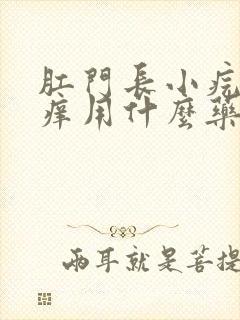 肛門長小疙
癢用什麼藥
兩耳就是菩提